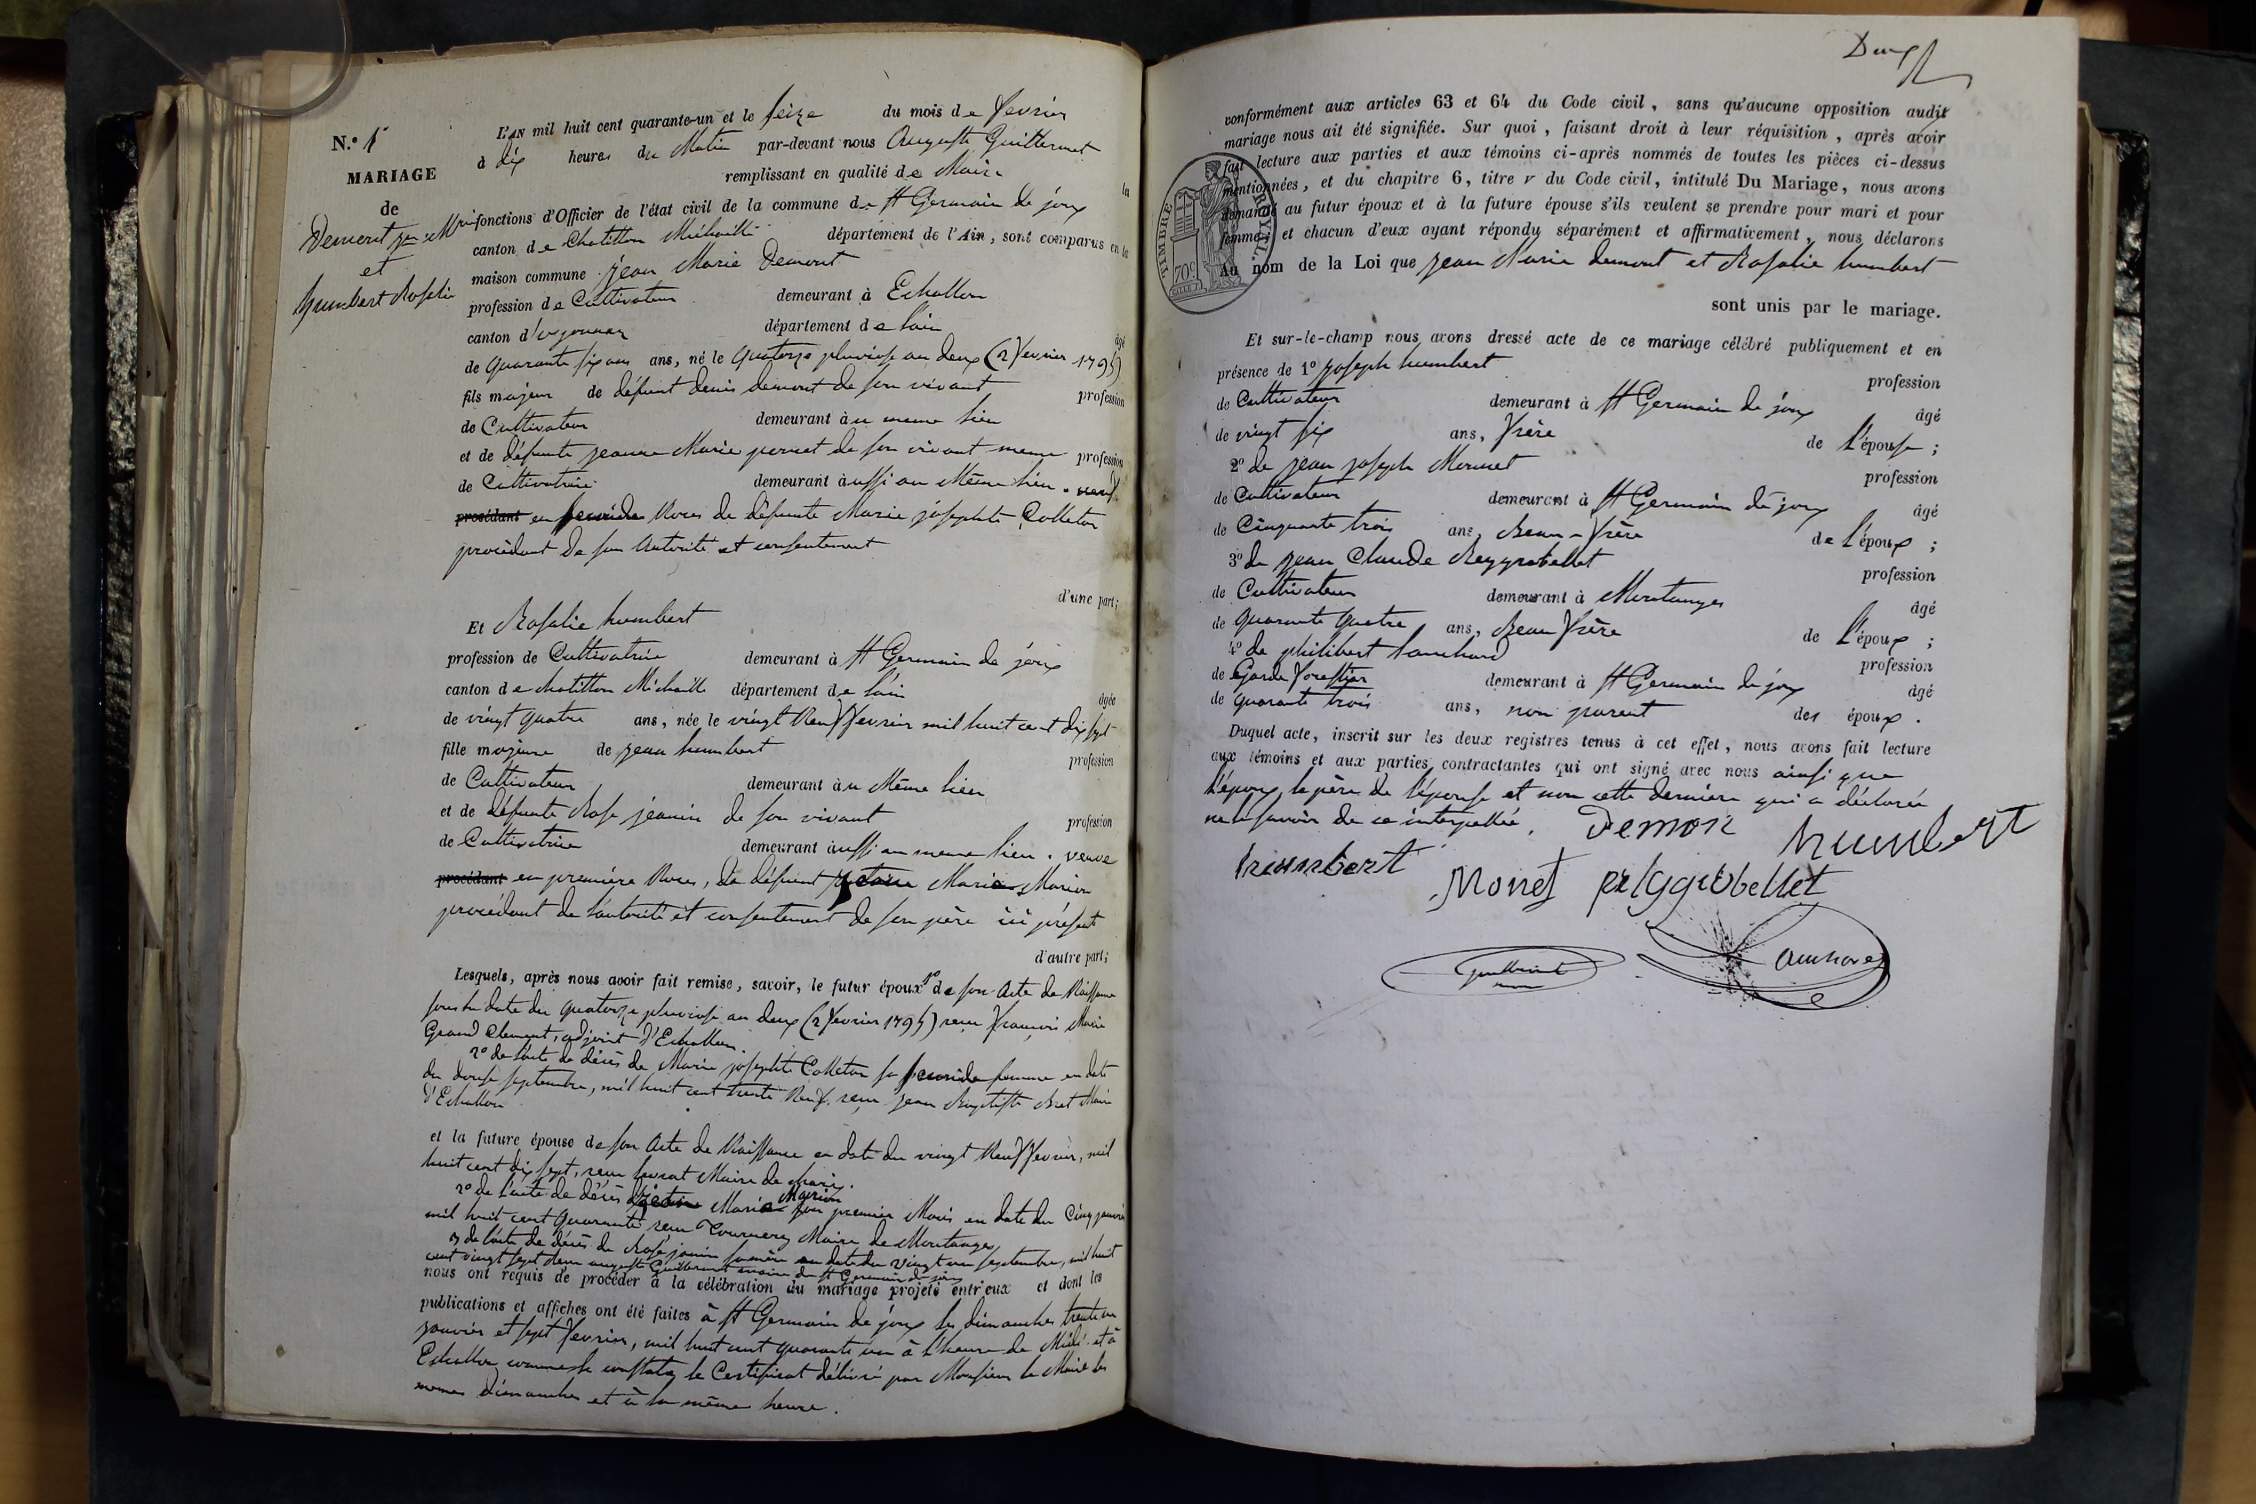 N.° 1
MARIAGE
de
Demont Jn Mrie
et
humbert Rosalie
L'AN mil huit cent quarante-un et le seize du mois de fevrier
à dix heures du Matin par-devant nous Auguste Guillermet
remplissant en qualité de Maire la
fonctions d'Officier de l'état civil de la commune de St Germain de joux
canton de Chatillon Michaille département de l'Ain, sont comparus en la
maison commune jean Marie Demont
profession de Cultivateur demeurant à Echallon
canton d'oyonnax département de l'ain âgé
de quarante six ans ans, né le quatorze pluviose an deux (2 fevrier 1794)
fils majeur de défunt denis demont de son vivant profession
de Cultivateur demeurant à u meme lieu
et de défunte jeanne Marie pernet de son vivant meme profession
de Cultivatrice demeurant à ussi au Même lieu. veuf
procédant en seconde Noces de défunte Marie josephte Colleton
procédant de son Autorité et consentement
d'une part;
Et Rosalie humbert
profession de Cultivatrice demeurant à St Germain de joux
canton de chatillon Michaille département de l'ain âgée
de vingt quatre ans, née le vingt Neuf fevrier mil huit cent dix sept
fille majeure de jean humbert profession
de Cultivateur demeurant à u Même lieu
et de défunte Rose jeanin de son vivant profession
de Cultivatrice demeurant à ussi au meme lieu. veuve
procédant en première Noces, de défunt Marie Marion
procédant de l'autorité et consentement de son père ici présent
d'autre part;
Lesquels, après nous avoir fait remise, savoir, le futur époux 1° de son Acte de Naissance
sous la date du quatorze pluviose an deux (2 fevrier 1794) reçu francois Marie
Grand Clement, adjoint d'Echallon.
2° de l'acte de décès de Marie josephte Colleton sa seconde femme en date
du douze septembre, mil huit cent trente Neuf reçu jean Baptiste Bret Maire
d'Echallon
et la future épouse de son Acte de Naissance en date du vingt Neuf fevrier, mil
huit cent dix sept, reçu Maire de
2° de l'acte de décès Marie Marion son premier Mari en date du Cinq janvier
mil huit cent quarante reçu Tournery Maire de Montanges
3 de l'acte de décès de Rose janin sa mère en date du vingt un septembre, mil huit
cent vingt sept auguste Guillermet maire de St Germain de joux
nous ont requis de procéder à la célébration du mariage projeté entr'eux et dont les
publications et affiches ont été faites à St Germain de joux les dimanches trente un
janvier et sept fevrier, mil huit cent quarante un à l'heure de Midi et à
Echallon comme le constate le Certificat délivré par Monsieur le Maire les
memes dimanches et à la même heure.
Deux
conformément aux articles 63 et 64 du Code civil, sans qu'aucune opposition audit
mariage nous ait été signifiée. Sur quoi, faisant droit à leur réquisition, après avoir
fait lecture aux parties et aux témoins ci-après nommés de toutes les pièces ci-dessus
mentionnées, et du chapitre 6, titre v du Code civil, intitulé Du Mariage, nous avons
demandé au futur époux et à la future épouse s'ils veulent se prendre pour mari et pour
femme; et chacun d'eux ayant répondu séparément et affirmativement, nous déclarons
Au nom de la Loi que jean Marie demont et Rosalie humbert
TIMBRE ROYAL.
70c
sont unis par le mariage.
Et sur-le-champ nous avons dressé acte de ce mariage célébré publiquement et en
présence de 1° joseph humbert profession
de Cultivateur demeurant à St Germain de joux âgé
de vingt six ans, frère de l'épouse;
2° de jean joseph Mermet profession
de Cultivateur demeurant à St Germain de joux âgé
de Cinquante trois ans, Beau-frère de l'époux;
3° de jean Claude Reygrobellet profession
de Cultivateur demeurant à Montanges âgé
de quarante quatre ans, Beau frère de l'époux;
4° de philibert profession
de Garde forestier demeurant à St Germain de joux âgé
de quarante trois ans, non parent des époux.
Duquel acte, inscrit sur les deux registres tenus à cet effet, nous avons fait lecture
aux témoins et aux parties contractantes qui ont signé avec nous ainsi que
l'époux le père de l'épouse et non cette dernière qui a déclarée
ne le savoir de ce interpellée.
Demon humbert
humbert